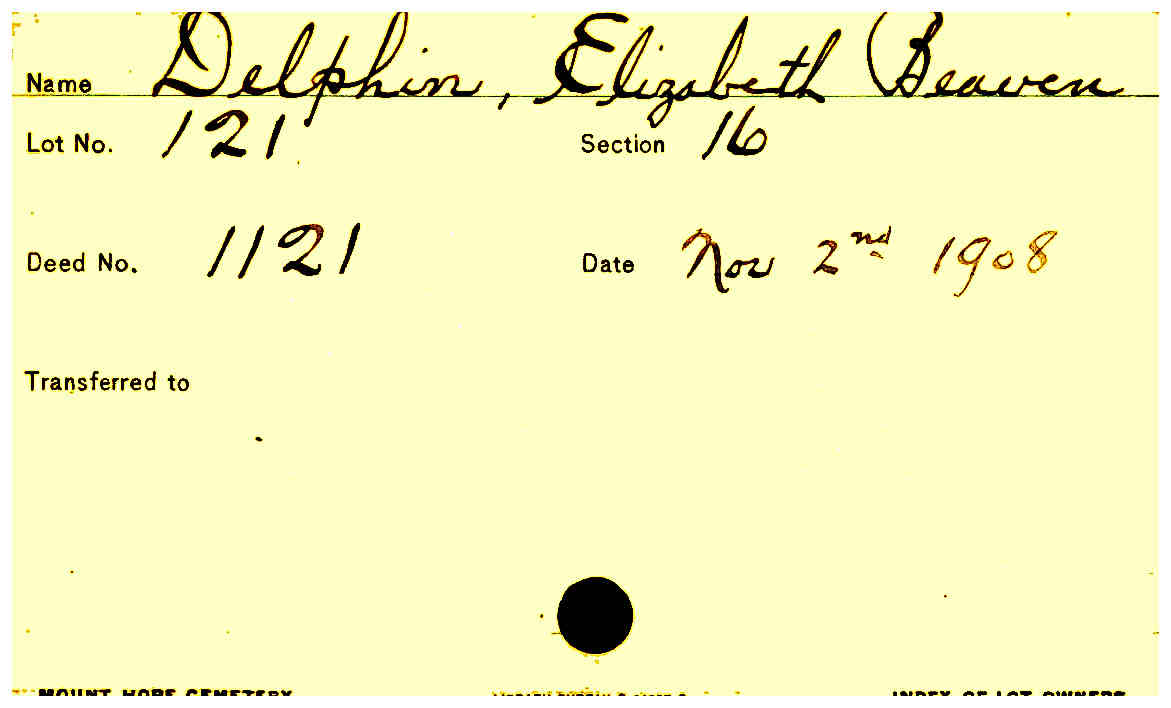 Name Delphin, Elizabeth Beaven
Lot No. 121 Section 16
Deed No. 1121 Date Nov 2nd 1908
Transferred to
MOUNT HOPE CEMETERY INDEX OF LOT OWNERS